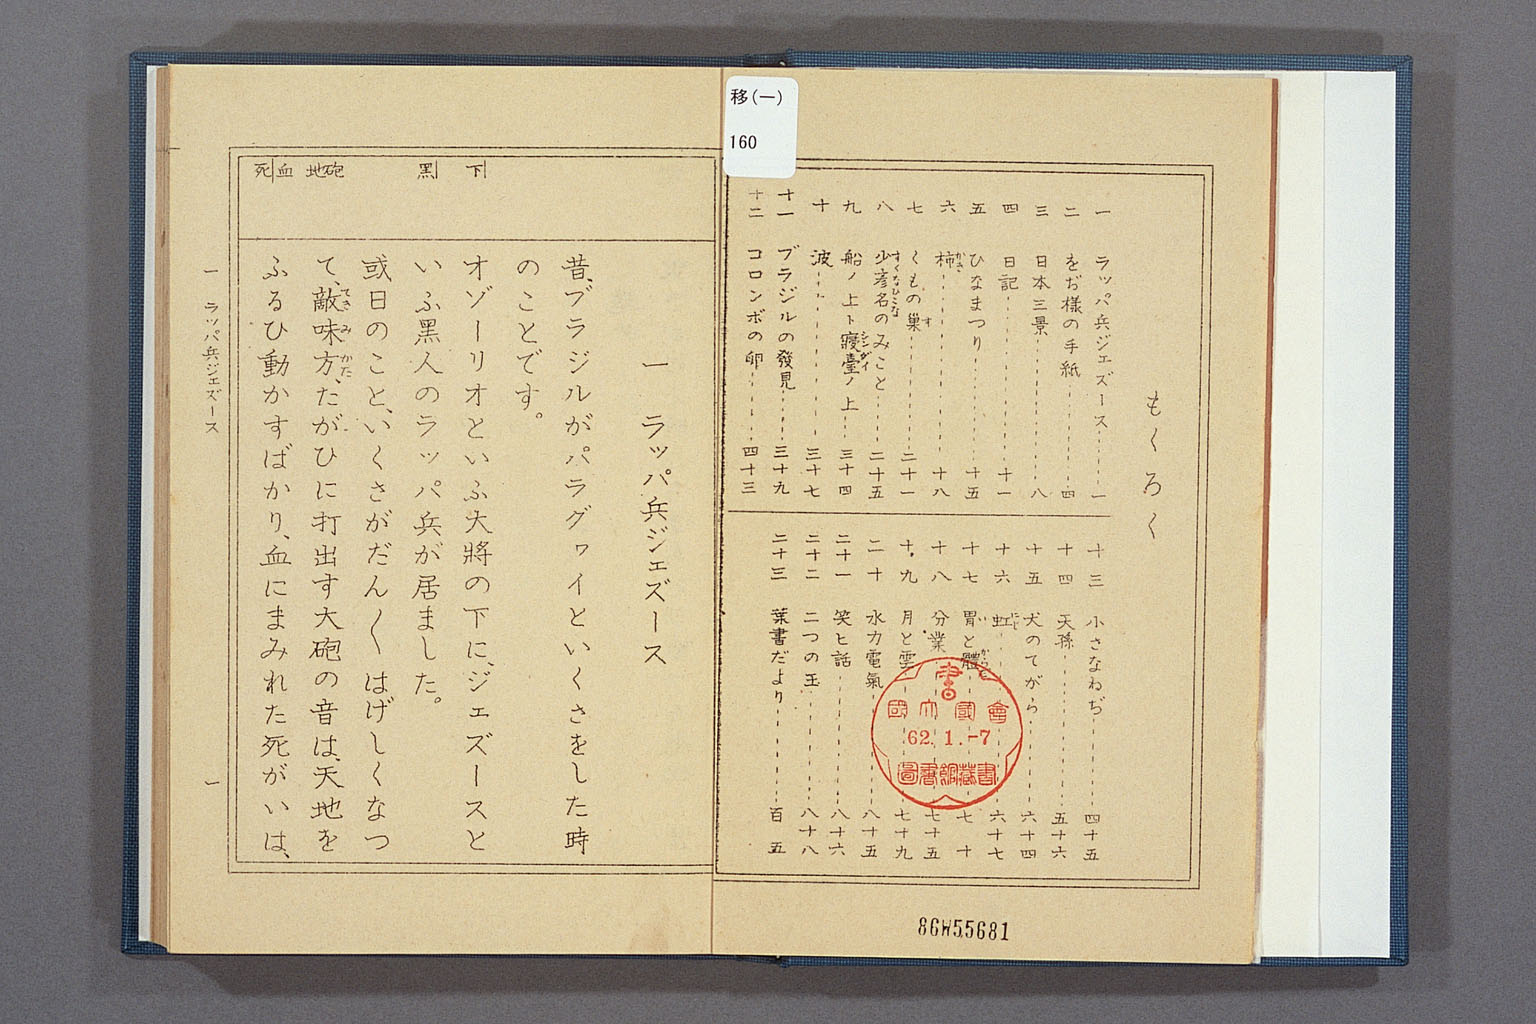 移(一)
160
もくろく
一 ラッパ兵ジェズース 一
二 をぢ様の手紙 四
三 日本三景 八
四 日記 十一
五 ひなまつり 十五
六 柿 十八
七 くもの巣 二十一
八 少彦名のみこと 二十五
九 船ノ上ト寢臺ノ上 三十四
十 波 三十七
十一 ブラジルの發見 三十九
十二 コロンボの卵 四十三
十三 小さなねぢ 四十五
十四 天孫 五十六
十五 犬のてがら 六十四
十六 虹 六十七
十七 胃と體 七十
十八 分業 七十五
十九 月と雲 七十九
二十 水力電氣 八十五
二十一 笑ヒ話 八十六
二十二 二つの玉 八十八
二十三 葉書だより 百五
國立國會
62.1.-7
圖書館藏書
86W55681
下 黑 砲 地 血 死
一 ラッパ兵ジェズース
昔、ブラジルがパラグヮイといくさをした時
のことです。
オゾーリオといふ大將の下に、ジェズースと
いふ黑人のラッパ兵が居ました。
或日のこと、いくさがだん〳〵はげしくなつ
て、敵味方、たがひに打出す大砲の音は、天地を
ふるひ動かすばかり、血にまみれた死がいは、
一 ラッパ兵ジェズース 一